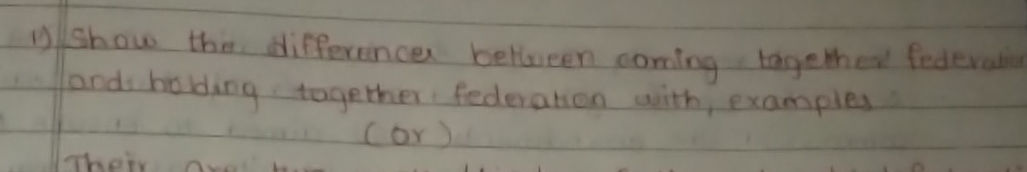 1) Show the differences between coming together federation
and holding together federation with, examples
(or)
Their are